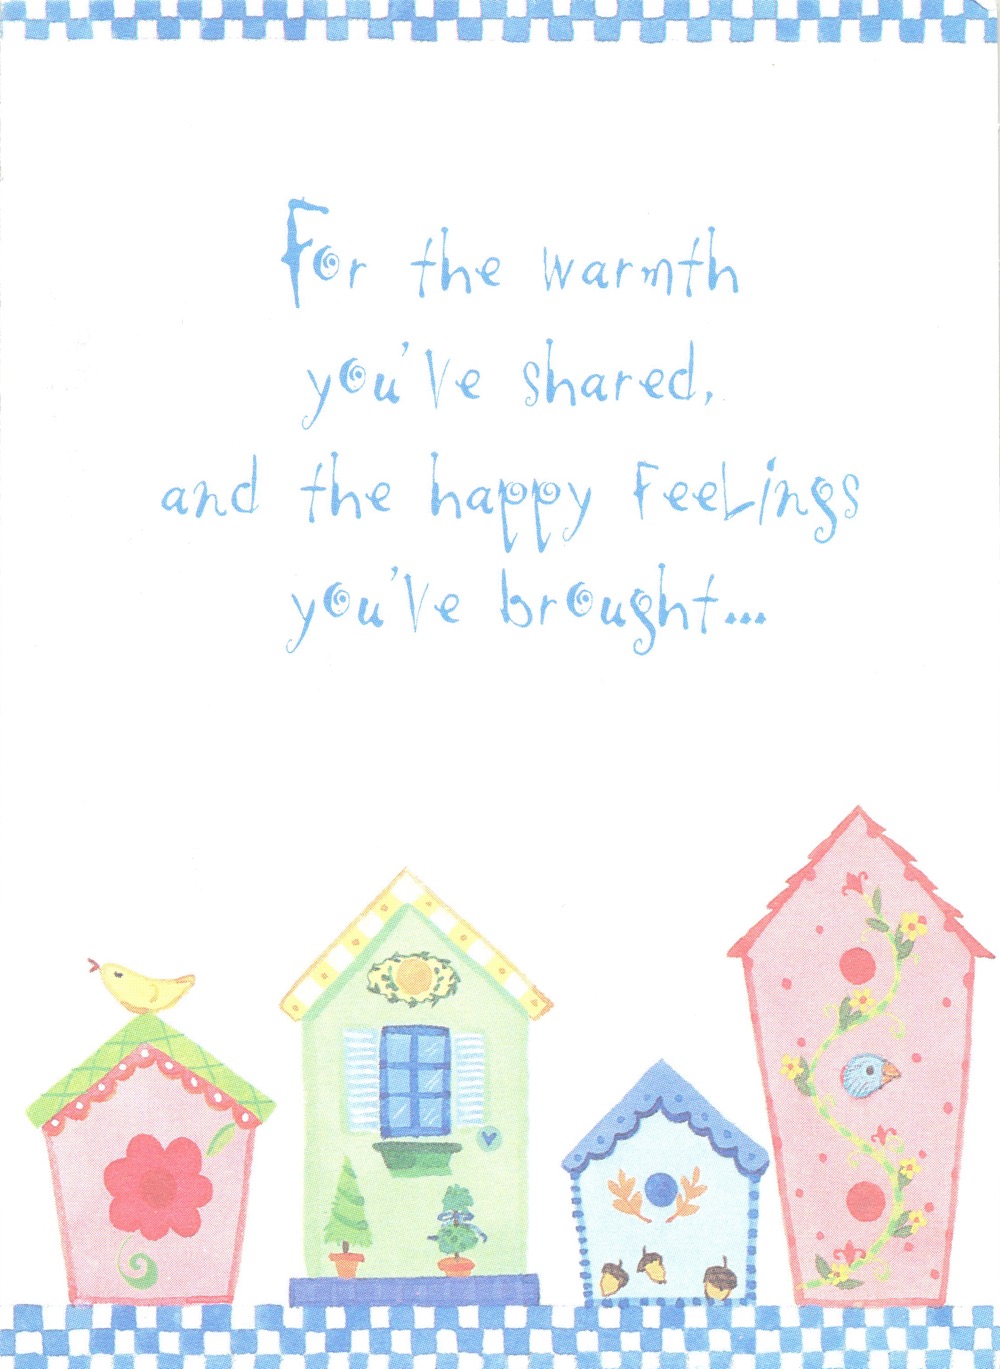 For the warmth
you've shared,
and the happy feelings
you've brought...